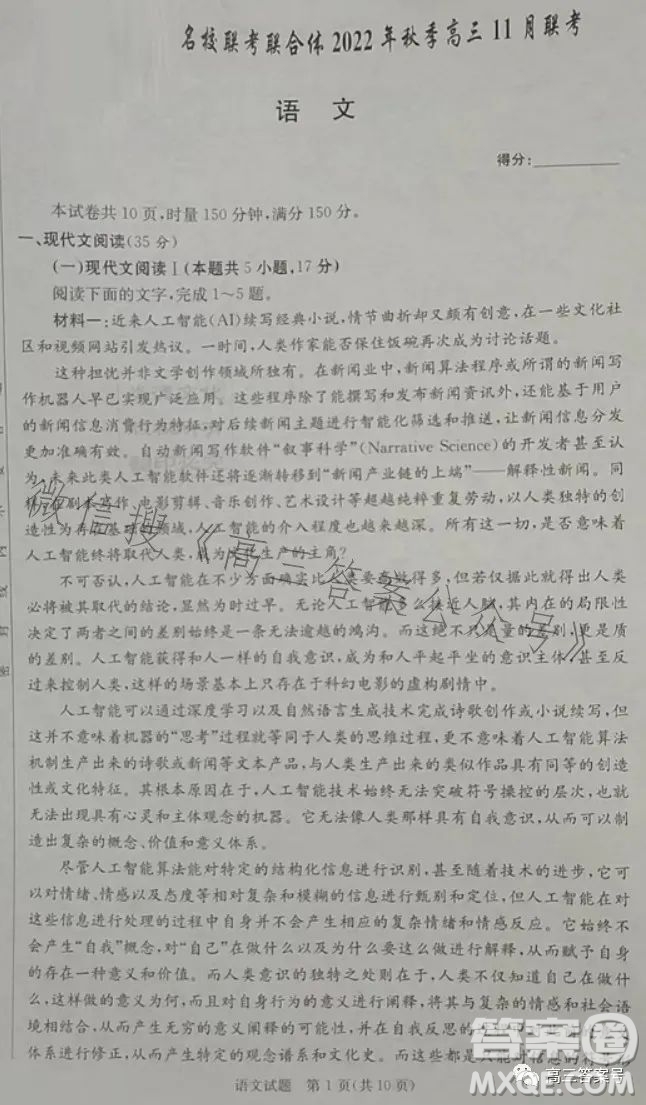 名校联考联合体2022年秋季高三11月联考
语 文
得分:
本试卷共10页,时量150分钟,满分150分。
一、现代文阅读(35分)
(一)现代文阅读Ⅰ(本题共5小题,17分)
阅读下面的文字,完成1~5题。
材料一:近来人工智能(AI)续写经典小说,情节曲折却又颇有创意,在一些文化社
区和视频网站引发热议。一时间,人类作家能否保住饭碗再次成为讨论话题。
这种担忧并非文学创作领域所独有。在新闻业中,新闻算法程序或所谓的新闻写
作机器人早已实现广泛应用。这些程序除了能撰写和发布新闻资讯外,还能基于用户
的新闻信息消费行为特征,对后续新闻主题进行智能化筛选和推送,让新闻信息分发
更加准确有效。自动新闻写作软件“叙事科学”(Narrative Science)的开发者甚至认
为,未来此类人工智能软件还将逐渐转移到“新闻产业链的上端”——解释性新闻。同
样,在剧本写作、电影剪辑、音乐创作、艺术设计等超越纯粹重复劳动,以人类独特的创
造性为再造基础的领域,人工智能的介入程度也越来越深。所有这一切,是否意味着
人工智能终将取代人类,成为内容生产的主角?
不可否认,人工智能在不少方面确实比人类要高效得多,但若仅据此就得出人类
必将被其取代的结论,显然为时过早。无论人工智能多么接近人脑,其内在的局限性
决定了两者之间的差别始终是一条无法逾越的鸿沟。而这绝不只是量的差别,更是质
的差别。人工智能获得和人一样的自我意识,成为和人平起平坐的意识主体,甚至反
过来控制人类,这样的场景基本上只存在于科幻电影的虚构剧情中。
人工智能可以通过深度学习以及自然语言生成技术完成诗歌创作或小说续写,但
这并不意味着机器的“思考”过程就等同于人类的思维过程,更不意味着人工智能算法
机制生产出来的诗歌或新闻等文本产品,与人类生产出来的类似作品具有同等的创造
性或文化特征。其根本原因在于,人工智能技术始终无法突破符号操控的层次,也就
无法出现具有心灵和主体观念的机器。它无法像人类那样具有意识,从而可以制
造出复杂的概念、价值和意义体系。
尽管人工智能算法能对特定的结构化信息进行识别,甚至随着技术的进步,它可
以对情绪、情感以及态度等相对复杂和模糊的信息进行甄别和定位,但人工智能在对
这些信息进行处理的过程中自身并不会产生相应的复杂情绪和情感反应。它始终不
会产生“自我”概念,对“自己”在做什么以及为什么要这么做进行解释,从而赋予自身
的存在一种意义和价值。而人类意识的独特之处则在于,人类不仅知道自己在做什
么,这样做的意义为何,而且对自身行为的意义进行阐释,将其与复杂的情感和社会语
境相结合,从而产生无穷的意义阐释的可能性,并在自我反思的
体系进行修正,从而产生特定的观念谱系和文化史。而这些都是人
语文试题 第1页(共10页)
微信搜《高三答案公众号》
答案圈
MXQE.COM
高三答案号